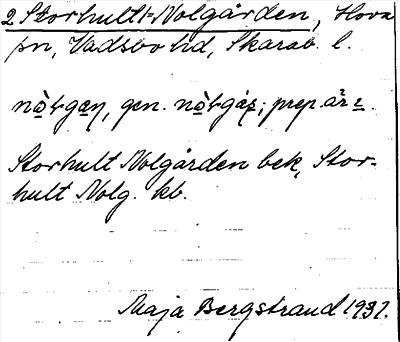 2 Storhult-Nolgården, Hova
sn, Vadsbo hd, Skarab. l.
gen. prep.
Storhult Nolgården bek, Stor-
hult Nolg. kb.
Maja Bergstrand 1931.